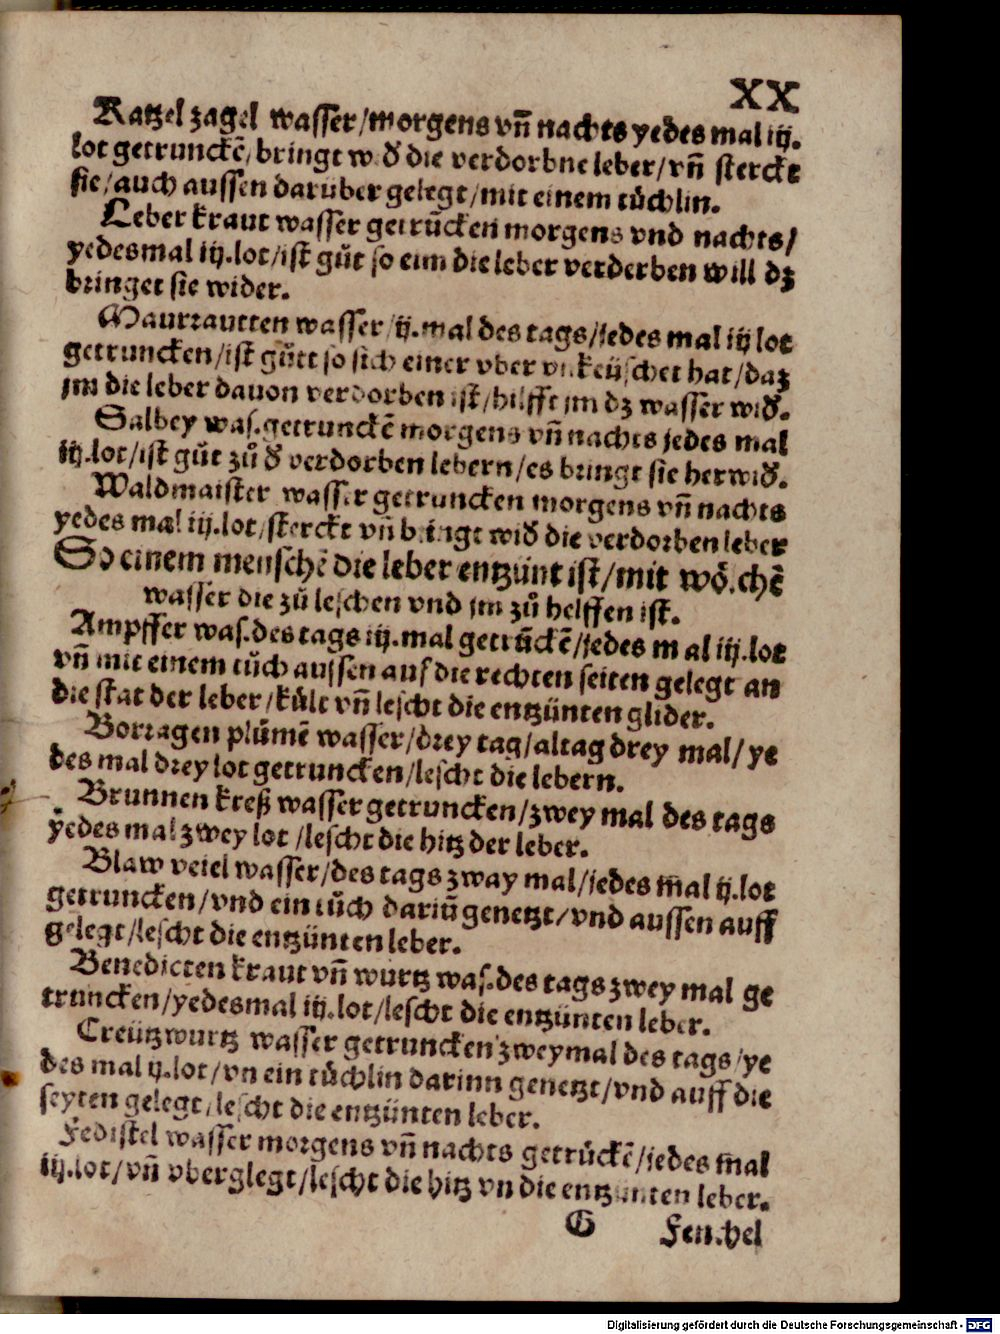 XX
Katzel zagel wasser/morgens vñ nachts yedes mal iij.
lot getrunckẽ/bringt wið die verdorbne leber/vñ sterckt
sie/auch aussen darüber gelegt/mit einem tüchlin.
Leber kraut wasser getrũcken morgens vnd nachts/
yedesmal iij.lot/ist gůt so eim die leber verderben will dz
bringet sie wider.
Maurrautten wasser/ij.mal des tags/jedes mal iij lot
getruncken/ist gůtt so sich einer vber vnkeüschet hat/daz
jm die leber dauon verdorben ist/hilfft jm dz wasser wið.
Salbey was.getrunckẽ morgens vñ nachts jedes mal
iij.lot/ist gůt zů ð verdorben lebern/es bringt sie herwið.
Waldmaister wasser getruncken morgens vñ nachts
yedes mal iij.lot/sterckt vñ bringt wið die verdorben leber
So einem menschẽ die leber entzünt ist/mit wölchẽ
wasser die zů leschen vnd jm zů helffen ist.
Ampffer was.des tags iij.mal getrũckẽ/jedes mal iij.lot
vñ mit einem tůch aussen auf die rechten seiten gelegt an
die stat der leber/kült vñ lescht die entzünten glider.
Borragen plůmẽ wasser/drey tag/altag drey mal/ye
des mal drey lot getruncken/lescht die lebern.
Brunnen kreß wasser getruncken/zwey mal des tags
yedes mal zwey lot/lescht die hitz der leber.
Blaw veiel wasser/des tags zway mal/jedes mal ij.lot
getruncken/vnd ein tůch dariñ genetzt/vnd aussen auff
gelegt/lescht die entzünten leber.
Benedicten kraut vñ wurtz was.des tags zwey mal ge
truncken/yedesmal iij.lot/lescht die entzünten leber.
Creützwurtz wasser getruncken zweymal des tags/ye
des mal ij.lot/vn ein tüchlin darinn genetzt/vnd auff die
seyten gelegt/lescht die entzünten leber.
Fedistel wasser morgens vñ nachts getrũckẽ/jedes mal
iij.lot/vñ vberglegt/lescht die hitz vn die entzünten leber.
G Fenchel
Digitalisierung gefördert durch die Deutsche Forschungsgemeinschaft - DFG